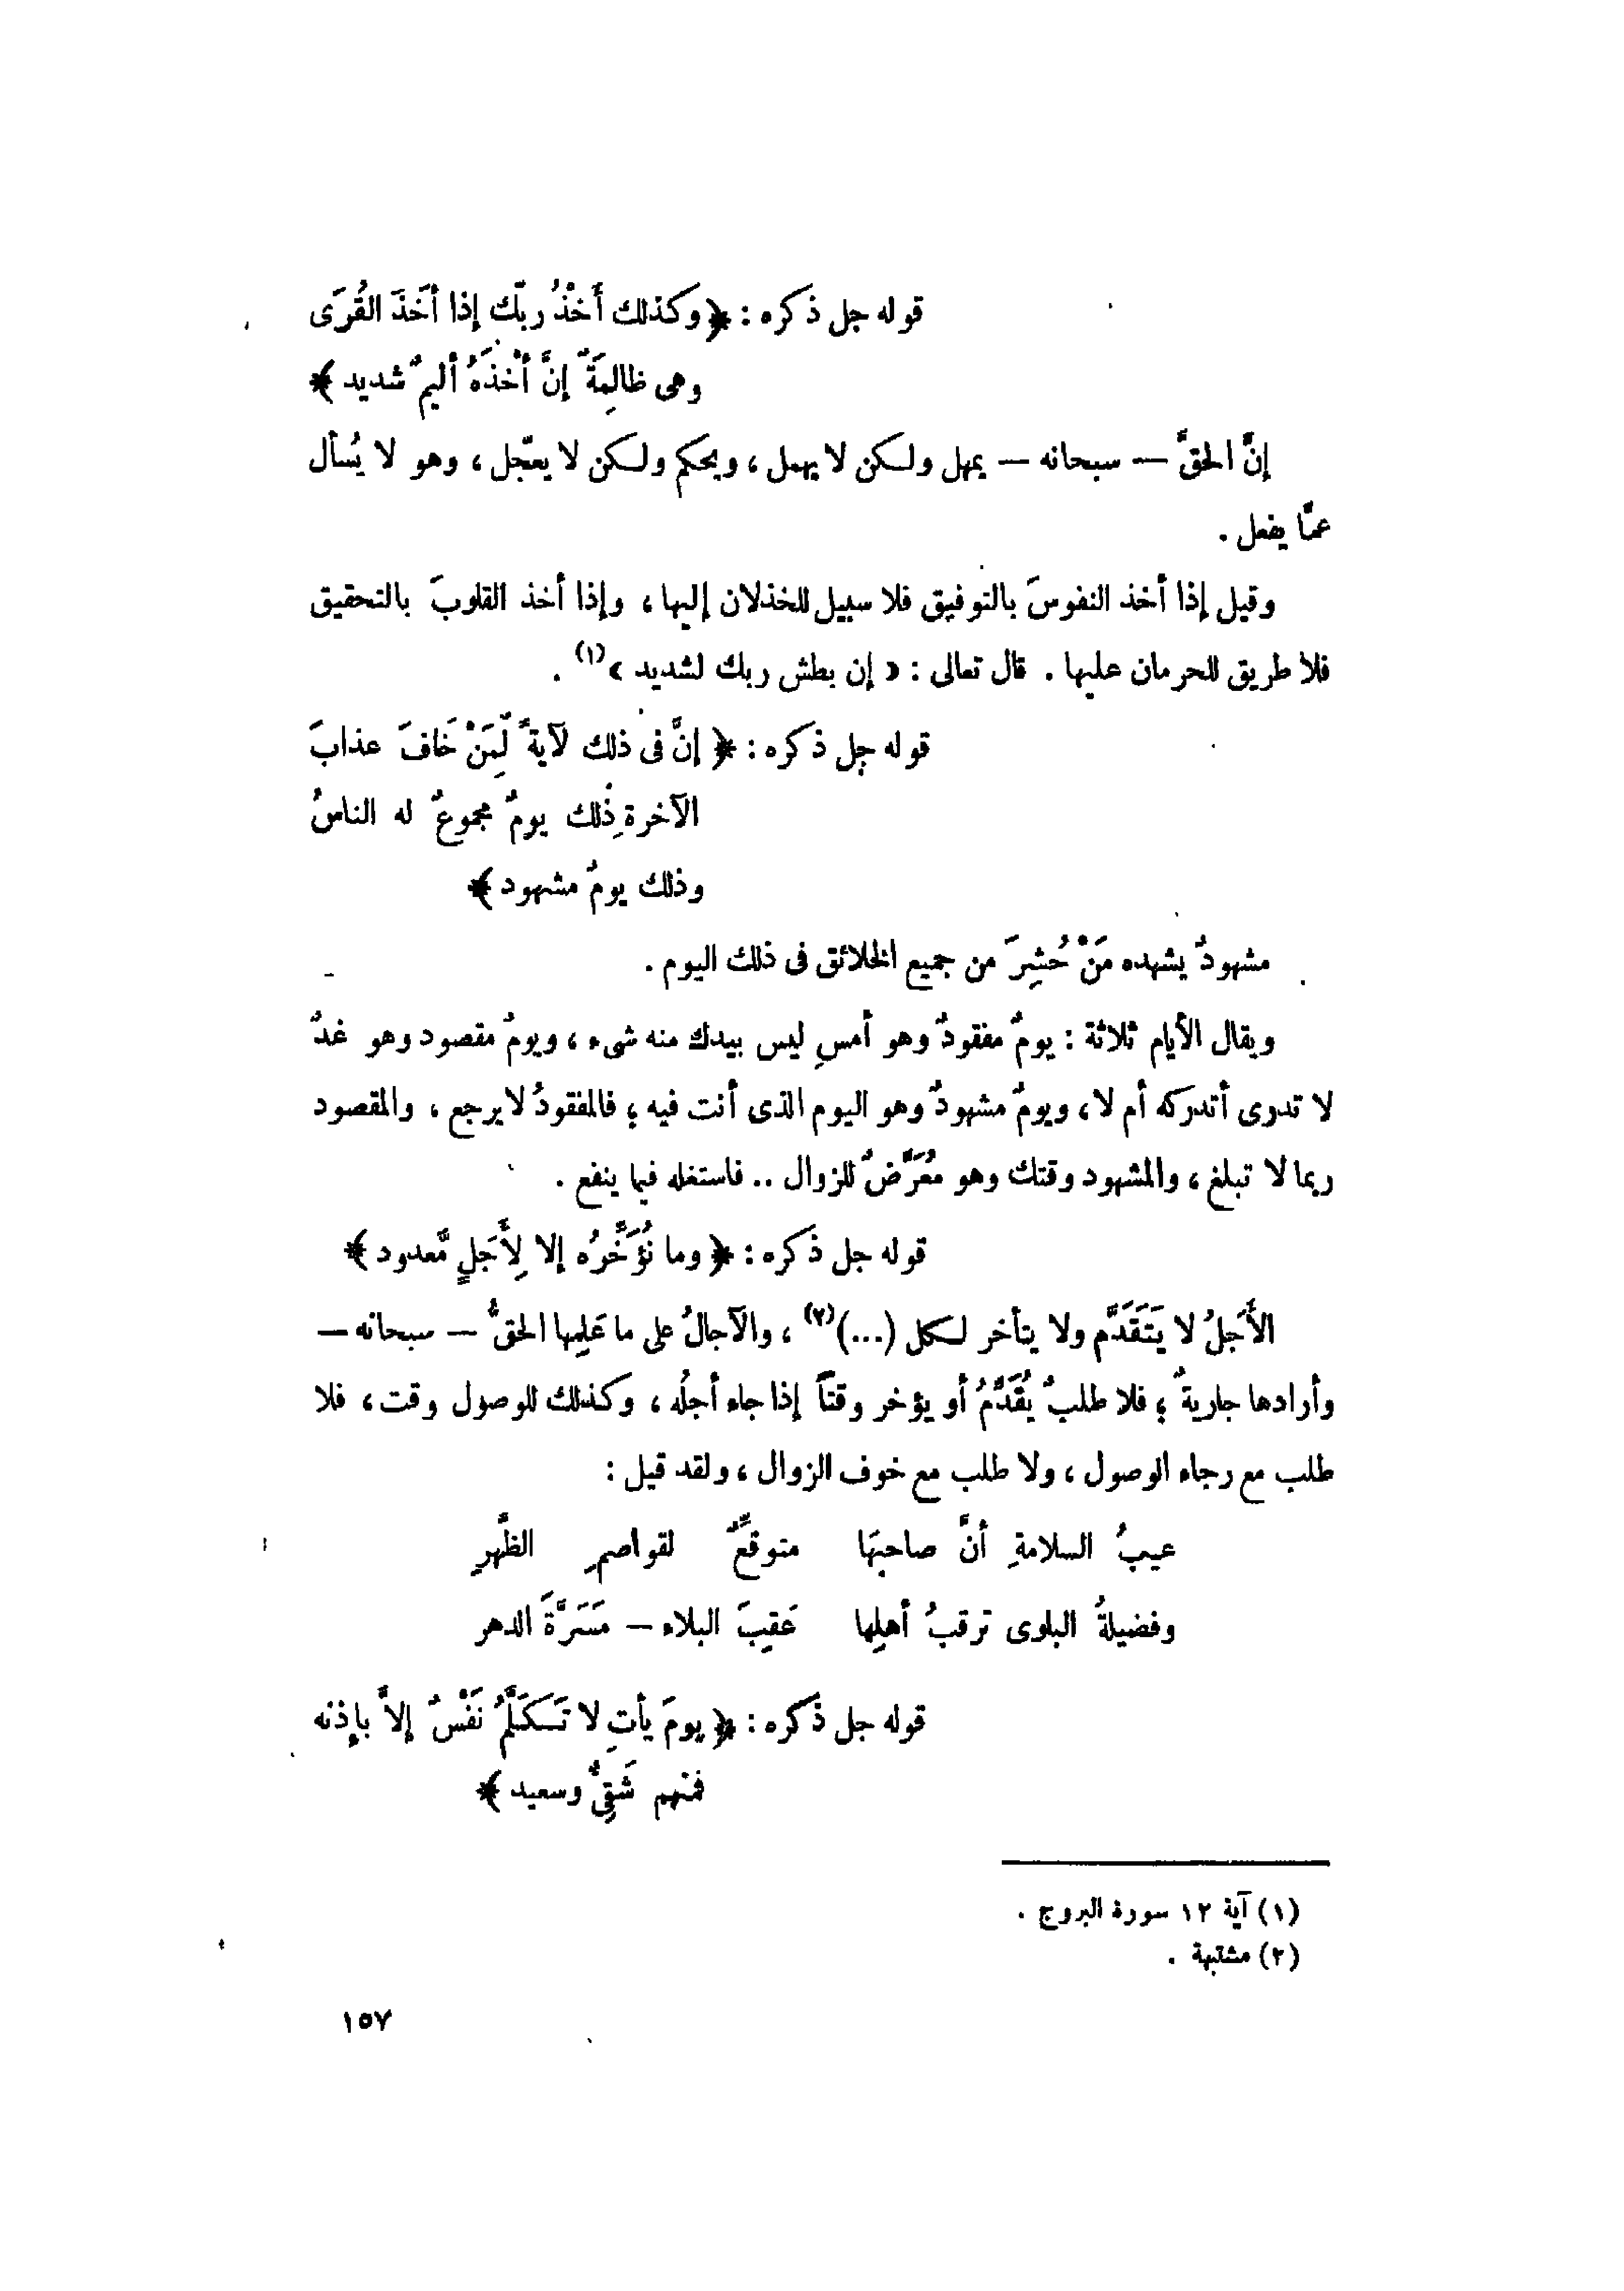 قوله جل ذكره : ﴿ وكذلك أَخْذُ ربِّك إذا أخَذَ القُرَى
وهى ظالِمَةٌ إنَّ أخْذَهُ أليمٌ شديد ﴾
إنَّ الحقَّ — سبحانه — يمهل ولكن لا يهمل ، ويحكم ولكن لا يعجِّل ، وهو لا يُسأل
عمَّا يفعل .
وقيل إذا أخذ النفوسَ بالتوفيق فلا سبيل للخذلان إليها ، وإذا أخذ القلوبَ بالتحقيق
فلا طريق للحرمان عليها . قال تعالى : « إن بطش ربك لشديد »(١) .
قوله جل ذكره : ﴿ إنَّ فى ذلك لآيةً لِّمَنْ خَافَ عذابَ
الآخرةِ ذٰلك يومٌ مجموعٌ له الناسُ
وذلك يومٌ مشهود ﴾
مشهودٌ يشهده مَنْ حُشِرَ من جميع الخلائق فى ذلك اليوم .
ويقال الأيام ثلاثة : يومٌ مفقودٌ وهو أمسِ ليس بيدك منه شىء ، ويومٌ مقصود وهو غدٌ
لا تدرى أتدركه أم لا ، ويومٌ مشهودٌ وهو اليوم الذى أنت فيه ؛ فالمفقودُ لا يرجع ، والمقصود
ربما لا تبلغ ، والمشهود وقتك وهو مُعَرَّضٌ للزوال .. فاستغله فيما ينفع .
قوله جل ذكره : ﴿ وما نُؤَخِّرُه إلا لِأَجَلٍ مَّعدود ﴾
الأَجَلُ لا يَتَقَدَّم ولا يتأخر لكل (...)(٢) ، والآجالُ على ما عَلِمها الحقُّ — سبحانه —
وأرادها جاريةٌ ؛ فلا طلبٌ يُقَدِّمُ أو يؤخر وقتاً إذا جاء أجلُه ، وكذلك للوصول وقت ، فلا
طلب مع رجاء الوصول ، ولا طلب مع خوف الزوال ، ولقد قيل :
عيبُ السلامةِ أنَّ صاحبَها متوقِّعٌ لقواصمِ الظَّهرِ
وفضيلةُ البلوى ترقبُ أهلِها عَقِبَ البلاء — مَسَرَّةَ الدهر
قوله جل ذكره : ﴿ يومَ يأتِ لا تَكَلَّمُ نَفْسٌ إلاَّ بإذنه
فمنهم شَقِىٌّ وسعيد ﴾
(١) آية ١٢ سورة البروج .
(٢) مشتبهة .
١٥٧